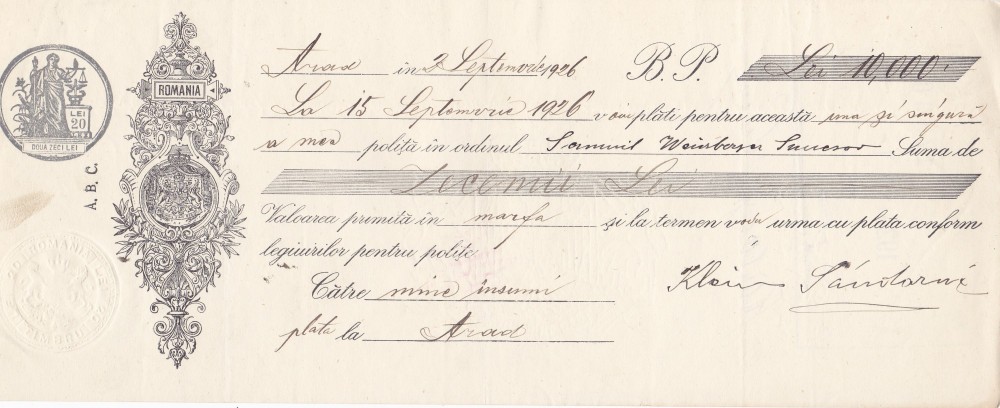 LEI
20
DOUĂ ZECI LEI
A. B. C.
ROMANIA
Arad în 2 Septemvrie 1926 B. P. Lei 10,000.
La 15 Septemvrie 1926 voiu plăti pentru această una și singură
a mea poliță în ordinul Samuil Weisberger Succesor Suma de
Zecemii Lei
Valoarea primită în marfa și la termen voiu urma cu plata conform
legiuirilor pentru polițe
Către mine însumi
plata la Arad
Klein Sándorné